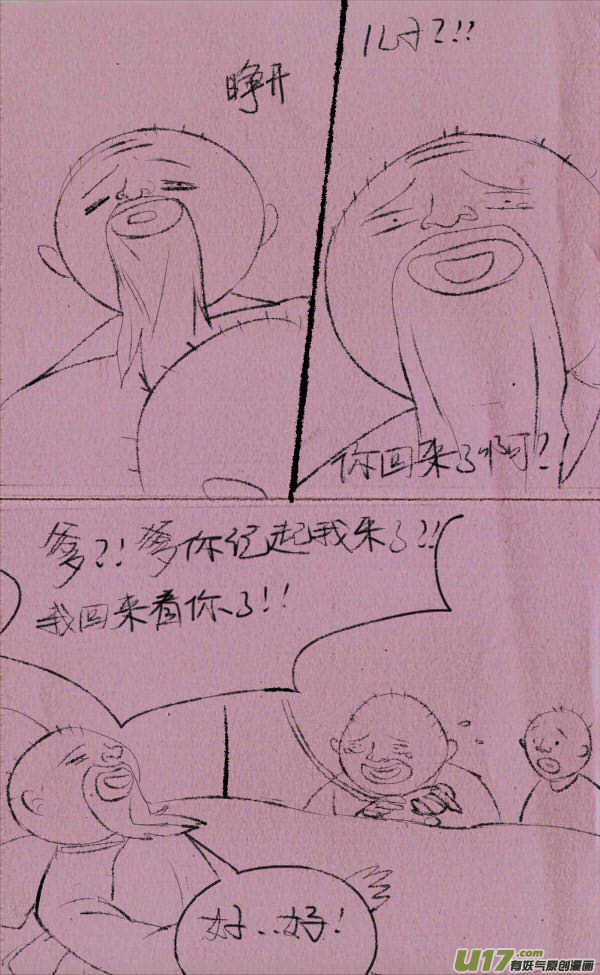 睁开
儿子?!!
你回来了啊?!
爹?!爹你记起我来了?!!
我回来看你了!!
好..好!
U17.COM
有妖气原创漫画